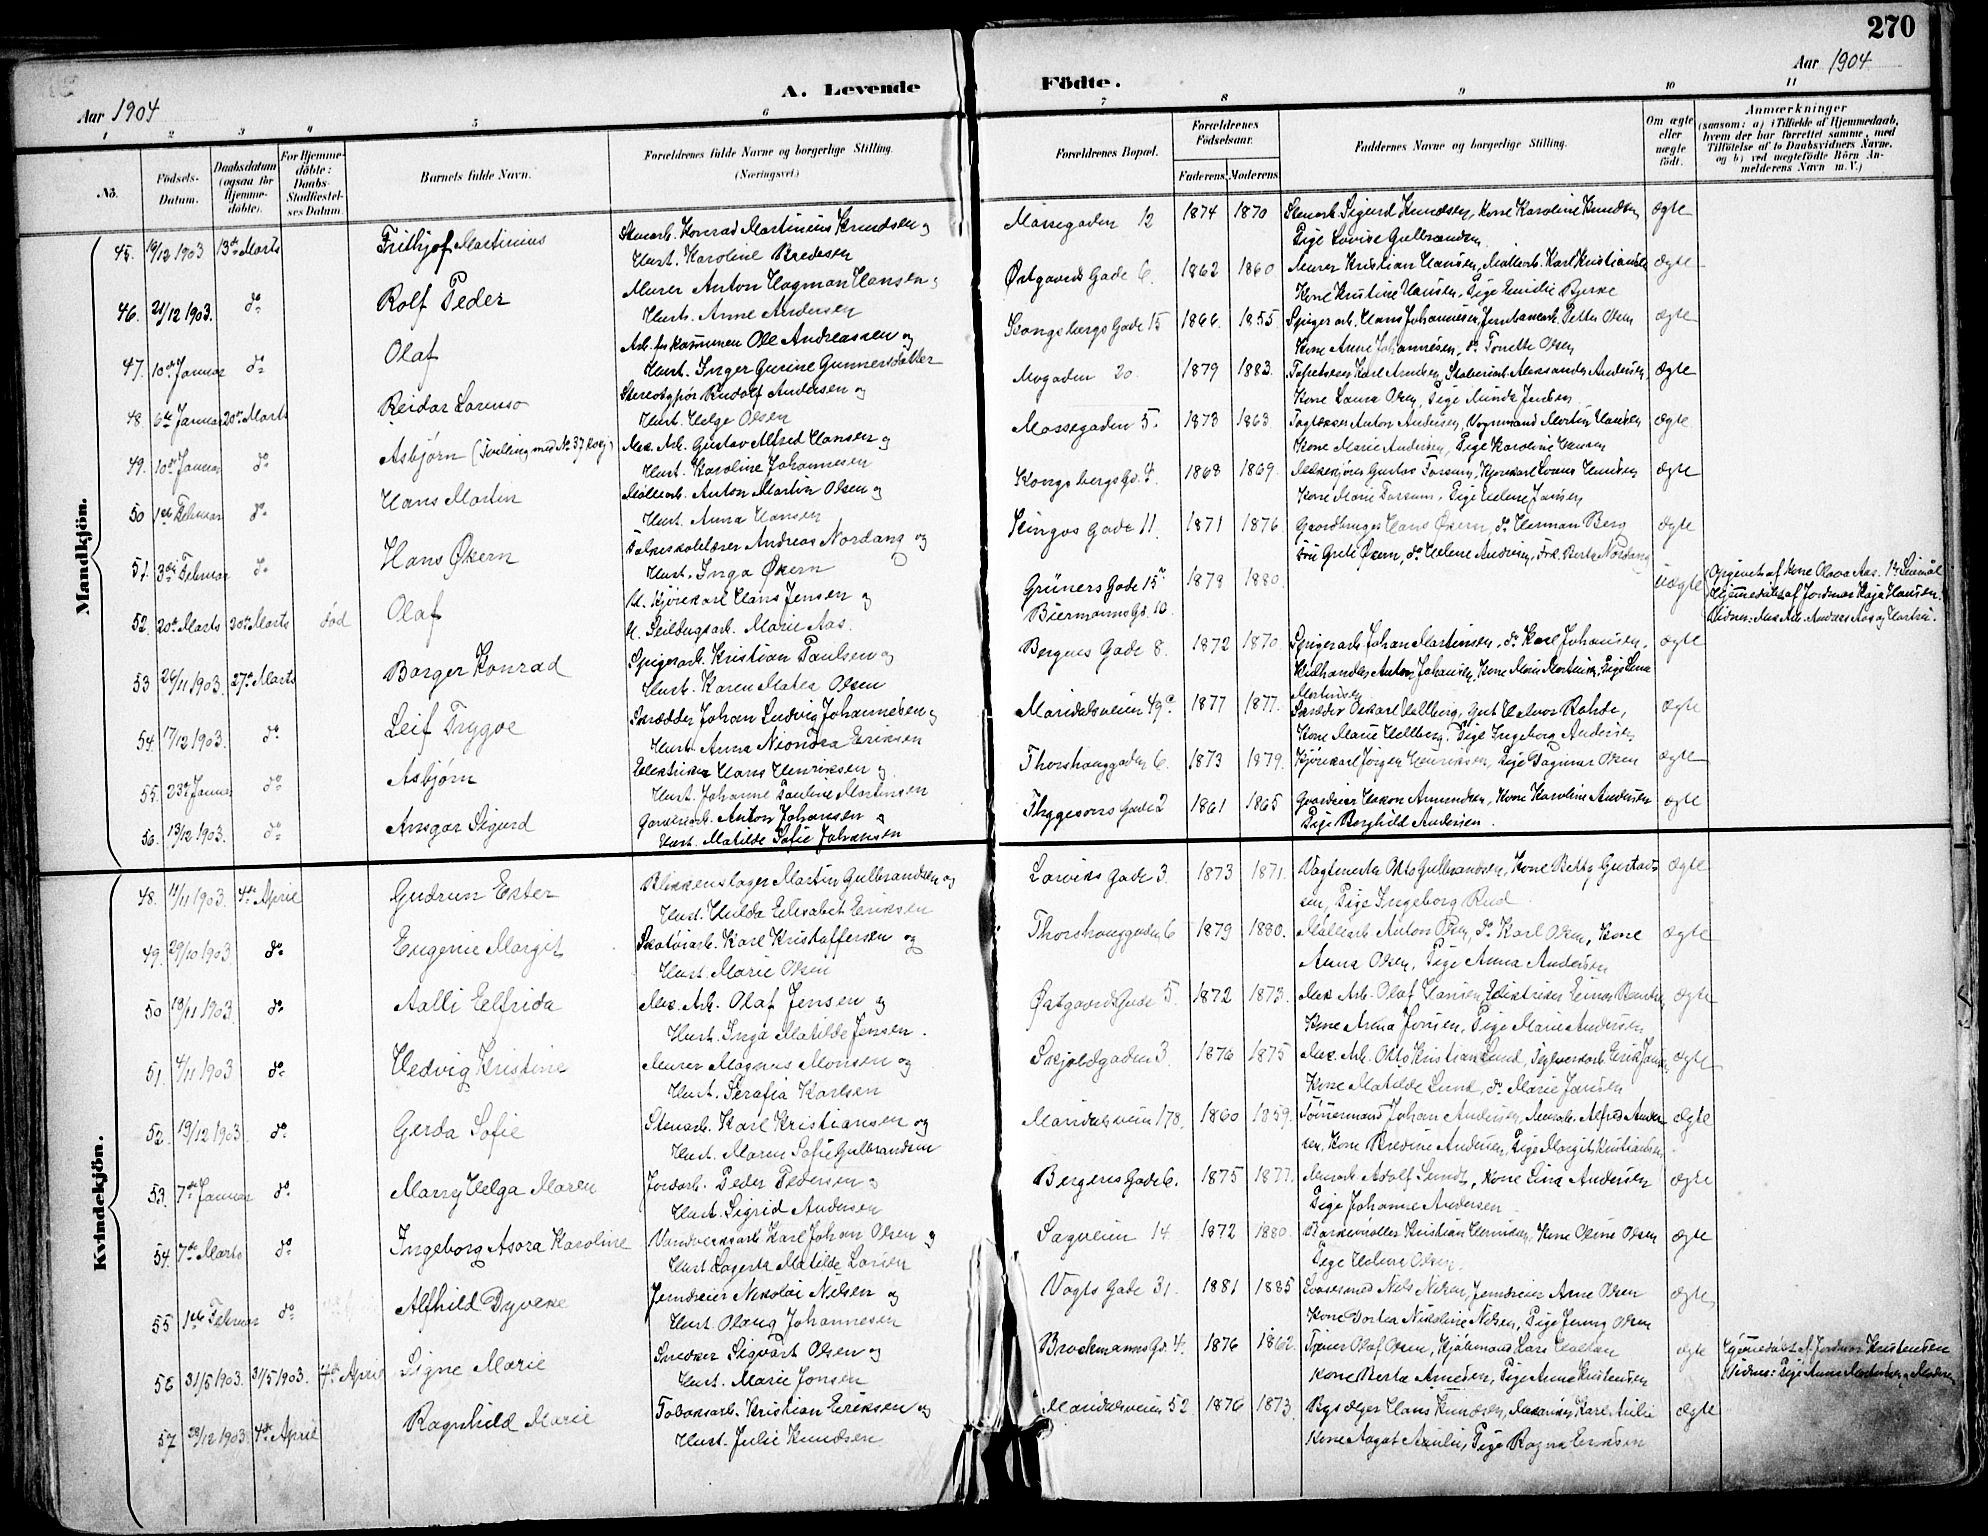 270
Aar 1904
A. Levende Födte.
Aar 1904
1 2 3 4 5 6 7 8 9 10 11
No.
Födsels-Datum.
Daabsdatum (ogsaa for Hjemmedöbte).
For Hjemmedöbte: Daabs-Stadfæstelses Datum
Barnets fulde Navn.
Forældrenes fulde Navne og borgerlige Stilling.
(Næringsvei.)
Forældrenes Bopæl.
Forældrenes Födselsaar.
Faderens. Moderens.
Faddernes Navne og borgerlige Stilling.
Om ægte eller uægte födt.
Anmærkninger
(saasom: a) i Tilfælde af Hjemmedaab, hvem der har forrettet samme, med Tilföielse af to Daabsvidners Navne, og b) ved uægtefödte Börn Anmelderens Navn m. V.)
Mandkjön.
45. 19/12 1903 13de Marts Frithjof Martinius Stenarb. Konrad Martinius Knudsen og Hust. Karoline Bredesen Mossegaden 12 1874 1870 Stenarb. Sigurd Knudsen, Kone Karoline Knudsen, Pige Lovise Gulbrandsen ægte
46. 21/12 1903. do Rolf Peder Murer Anton Hagman Hansen og Hust. Anne Andersen Østgaards Gade 6. 1862 1860 Murer Kristian Hansen, Malerarb. Karl Kristiansen Kone Kristine Hansen, Pige Emilie Bjerke ægte
47. 10de Januar do Olaf Arb. for kommunen Ole Andreassen og Hust. Inger Gurine Gunnersdatter Kongsbergs Gade 15 1866. 1855 Spigerarb. Hans Johannesen, Jernbanearb. Petter Olsen Kone Anne Johannesen, do Tonette Olsen ægte
48 6te Januar 20de Marts Reidar Lorenso Stereotypör Rudolf Andersen og Hust. Helga Olsen Mogaden 20. 1879 1883. Kone Laura Olsen, Pige ægte
49. 10de Januar do Asbjørn (Tvilling med No 37 Kvkj) Mek. Arb. Gustav Alfred Hansen og Hust. Karoline Johannesen Mossegaden 5. 1873 1863 Tagtækker Anton Andersen, Vognmand Martin Hansen Kone Marie Andersen, Pige Karoline Hansen ægte
50 1ste Februar do Hans Martin Møllearb. Anton Martin Olsen og Hust. Anna Hansen Kongsbergs Gd. 7. 1868 1869. Kone Marie Forsum, Pige Helene Jansen ægte
51. 3die Februar do Hans Økern Folkeskolelærer Andreas Nordang og Hust. Inga Økern Kingos Gade 11. 1871 1876 Gaardbruger Hans Økern, do Herman Berg Fru Grete Økern, do Helene Andersen, Frk. Berta Nordang ægte
52. 20de Marts 20de Marts död Olaf U. Kjörekarl Hans Jensen og U. Seildugsarb. Marie Aas. Grüners Gade 15 Biermanns Gd. 10. 1878 1880. uægte Opgivet af Kone Olava Aas. Hjemmedöbt af Jordmor Kaja Hansen. Vidner: Mek. Arb. Andreas Aas og Hustru.
53 26/11 1903. 27de Marts Borger Konrad Spigerarb. Kristian Paulsen og Hust. Karen Matea Olsen Bergens Gade 8. 1872 1870. Spigerarb. Johan Martinsen, do Karl Johansen, Anton Johansen, Kone Marie Martinsen, Pige Lina Martinsen ægte
54. 17/12 1903. do Leif Trygve Skrædder Johan Ludvig Johannesen og Hust. Anna Eriksen Maridalsveien 49c. 1877 1877. Skræder Oskar Hellberg, Gut Halvor Rohde, Kone Marie Hellberg, Pige Ingeborg Andersen ægte
55. 23de Januar do Asbjørn Elektriker Hans Henriksen og Hust. Johanne Pauline Martinsen Thorshauggaden 6. 1873 1879. Kjörekarl Jörgen Henriksen, Pige Dagmar Olsen ægte
56. 13/12 1903. do Ansgar Sigurd Garveriarb. Anton Johansen og Hust. Matilde Sofie Johansen Thygesons Gade 2 1861 1865 Gaardeier Haakon Amundsen, Kone Karoline Andersen Pige Borghild Andersen. ægte
Kvindekjön.
48. 11/11 1903. 4de April Gudrun Ester Blikkenslager Martin Gulbrandsen og Hust. Hulda Elisabet Eriksen Larviks Gade 3. 1873 1871. Vagtmester Otto Gulbrandsen, Kone Betty Gustavsen, Pige Ingeborg Rud ægte
49. 29/10 1903 do Eugenie Margit Skotöiarb. Karl Kristoffersen og Hust. Marie Olsen Thorshauggaden 6 1879 1880. Møllearb. Anton Olsen, do Karl Olsen, Kone Anna Olsen, Pige Anna Andersen ægte
50 19/11 1903. do Aalli Elfrida Mek. Arb. Olaf Jensen og Hust. Inga Matilde Jensen. Østgaards Gade 5. 1872 1873. Mek. Arb. Olaf Hansen, Elektriker Einar Kone Anna Jonsen, Pige Marie Andersen ægte
51. 4/11 1903 do Hedvig Kristine Murer Magnus Monsen og Hust. Serafia Karlsen Skjoldgaden 3. 1876 1875 Mek. Arb. Otto Kristian Lund, Teglverksarb. Erik Jansen, Kone Matilde Lund, do Marie Jansen ægte
52. 19/12 1903. do Gerda Sofie Stenarb. Karl Kristiansen og Hust. Maren Sofie Gulbrandsen Maridalsveien 178. 1860 1859. Tömmermand Johan Andersen, Murarb. Alfred Andersen, Kone Bredine Andersen, Pige Margit Kristiansen ægte
53. 7de Januar do Marry Helga Maren Jordarb. Peder Pedersen og Hust. Sigrid Andersen Bergens Gade 6. 1875 1877. Murarb. Adolf Lundt, Kone Lina Andersen Pige Johanne Andersen ægte
54. 7de Marts do Ingeborg Asora Karoline Vandverksarb. Karl Johan Olsen og Hust. Lagerta Matilde Larsen Sagveien 14. 1872 1880. Kristian Henriksen, Kone Oline Olsen Pige Helene Olsen. ægte
55 1ste Februar do Alfhild Dyveke Jerndreier Nikolai Nilsen og Hust. Olaug Johannesen Vogts Gade 31. 1881 1885 Nils Nilsen, Jerndreier Arne Olsen Kone Dortea Nikoline Nilsen, Pige Jenny Olsen ægte
56 31/5 1903. 31/5 1903. 4de April Signe Marie Snedker Sigvart Olsen og Hust. Marie Jonsen Brochmanns Gd. 4. 1876 1862. Olaf Olsen, Kone Berta Arnesen, Pige Anna Kristensen ægte Hjemmedöbt af Jordmor Kristensen Vidner: Pige Anna
57 28/12 1903. 4de April Ragnhild Marie Tobaksarb. Kristian Eriksen og Hust. Julie Knudsen Maridalsveien 52 1876 1873. Hans Knudsen, Karl Aulie Kone Aagot Aulie, Pige Ragna Eriksen ægte